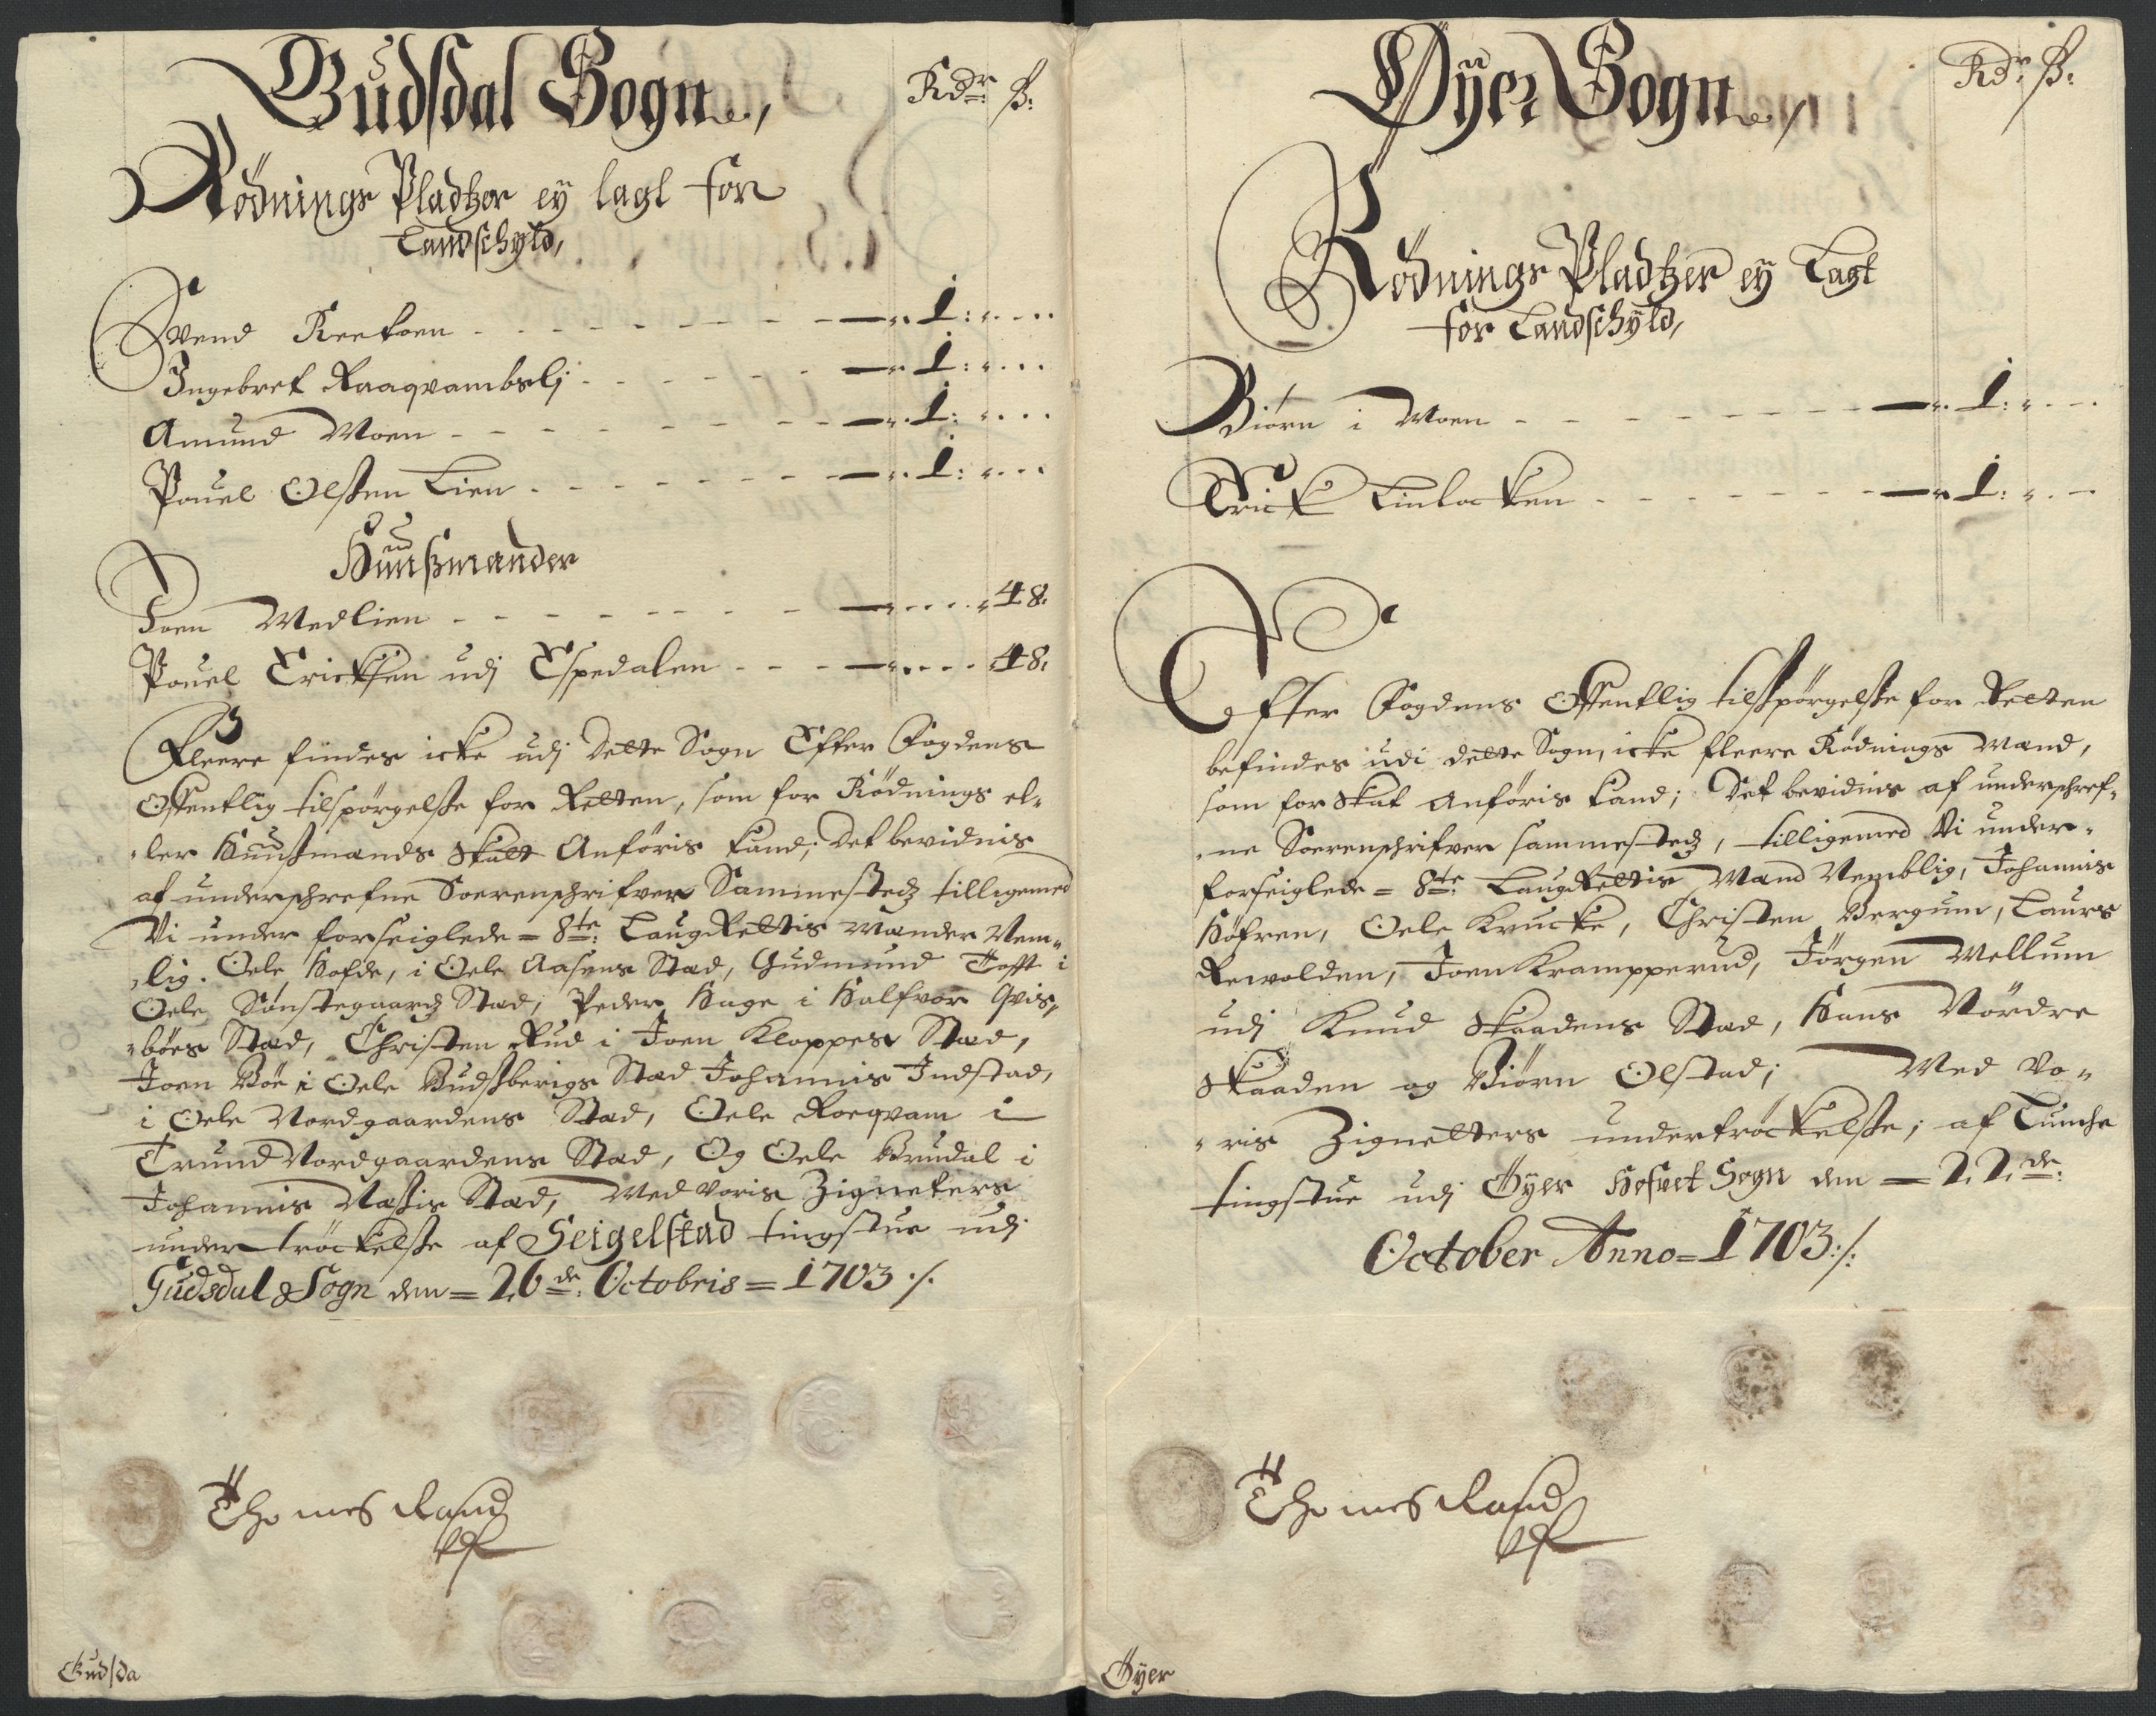 Gudsdal Sogn,
Rdr ß:
Rödnings Pladtzer ey lagt for
Landschyld,
Svend - 1:
Ingebret Raaqvambslj - 1:
Amund Moen - 1:
Pouel Olssen Lien - 1:
Huußmænder
Joen Medlien - 48.
Pouel Ericksen udj Espedalen - 48.
Fleere findes icke udj Dette Sogn Effter Fogdens
Offentlig tilspörgelsse for Retten, som for Rödnings el-
ler Huusmands Skatt Anföris kand; Det bevidnis
af underschrefne Soerenschrifver Sammestedz tilligemed
Vi under forseiglede = 8te: LaugRettis Mænder Nem-
lig. Oele Hofde, i Oele Aasens Stæd, Gudmund Tofft i
Oele Sönstegaardz Stæd, Peder Hage i Halfvor Qvis-
böes Stæd, Christen Rud i Joen Kloppes Stæd,
Joen Böe i Oele Budsberigs Stæd Johannis Indstad,
i Oele Nordgaardens Stæd, Oele Roeqvam i
Trund Nordgaardens Stæd, Og Oele Brudal i
Johannis Næssis Stæd, Med voris Zigneters
under tröckelsse af Seigelstad tingstue udj
Gudsdals Sogn den = 26de: Octobris = 1703 ./.
Thomes Rasch
Gudsda
Öyer Sogn,
Rdr ß:
Rödnings Pladtzer ey Lagt
for Landschyld,
Biörn i Moen - 1:
Erick Linlöcken - 1:
Effter Fogdens Offentlig tilsspörgelsse for Retten
befindes udi dette Sogn, icke fleere Rödnings Mænd,
som for Skat anföris kand; Det bevidnis af underschref-
ne Soerenschrifver sammestedz, tilligemed Vi under-
forseiglede = 8te: LaugRettis Mænd Nemblig, Johannis
Höfren, Oele Krucke, Christen Bergum, Laurs
Rewolden, Joen Krampperud, Jörgen Mellum
udj Knud Skaadens Stæd, Hans Nördre
Skaaden og Biörn Olstad; Med vo-
ris Zignetters undertröckelsse; af Tunche
tingstue udj Öyer Hofvet Sogn den = 22de:
October Anno = 1703 ./.
Thomes Rasch
Öyer